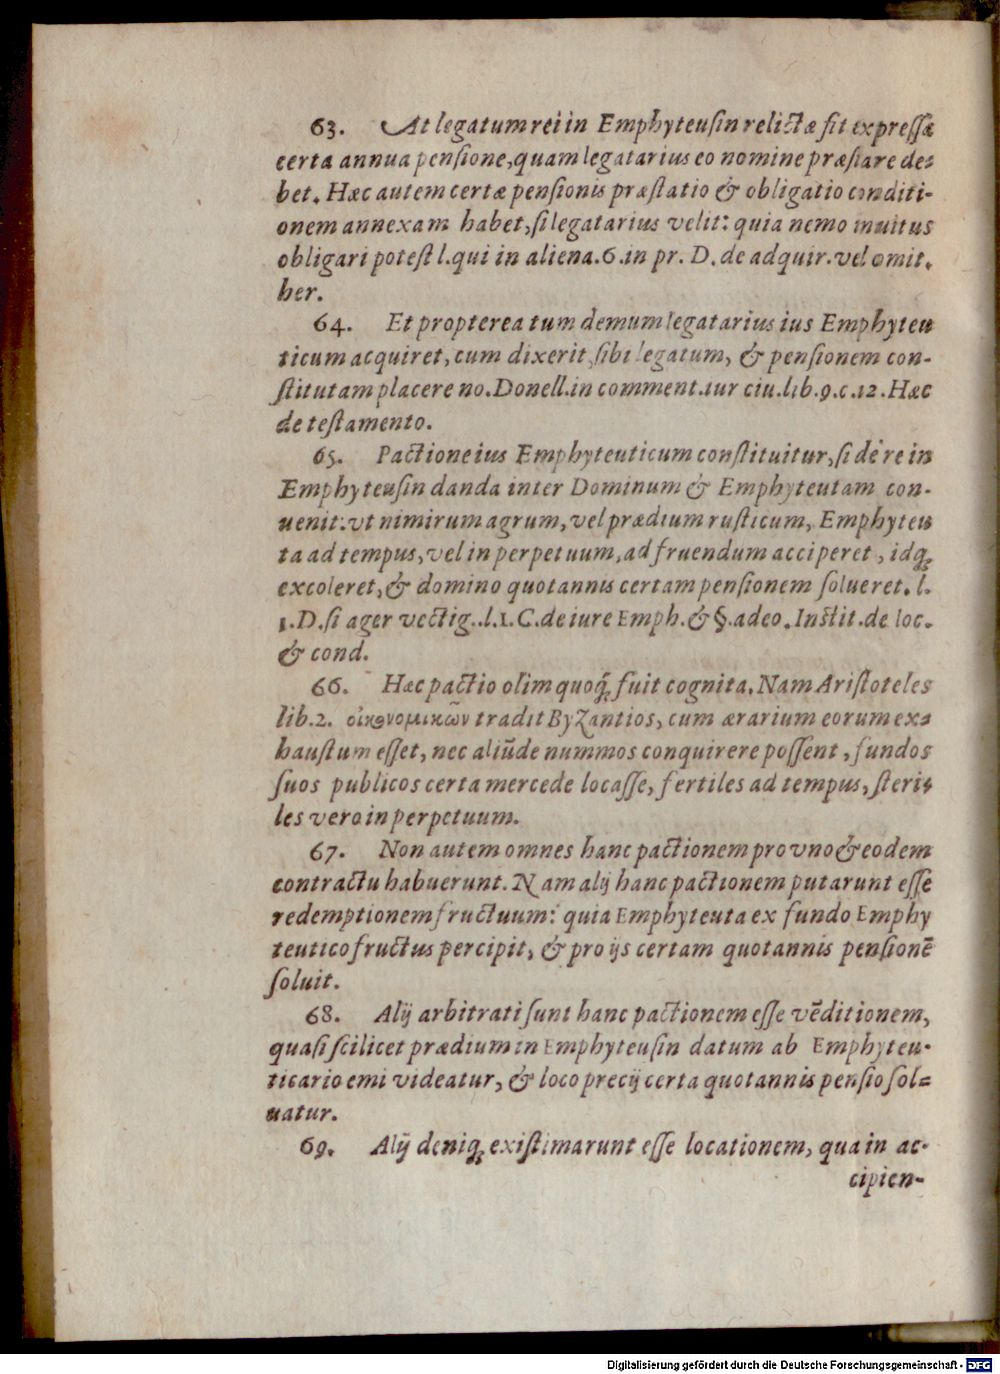 63. At legatum rei in Emphyteuſin relictæ fit expreſſa
certa annua penſione, quam legatarius eo nomine præſtare de-
bet. Hæc autem certæ penſionis præſtatio & obligatio conditi-
onem annexam habet, ſi legatarius velit: quia nemo inuitus
obligari poteſt l. qui in aliena. 6. in pr. D. de adquir. vel omit.
her.
64. Et propterea tum demum legatarius ius Emphyteu
ticum acquiret, cum dixerit, ſibi legatum, & penſionem con-
ſtitutam placere no. Donell. in comment. iur ciu. lib. 9. c. 12. Hæc
de teſtamento.
65. Pactione ius Emphyteuticum conſtituitur, ſi de re in
Emphyteuſin danda inter Dominum & Emphyteutam con-
uenit: vt nimirum agrum, vel prædium ruſticum, Emphyteu
ta ad tempus, vel in perpetuum, ad fruendum acciperet, idq́;
excoleret, & domino quotannis certam penſionem ſolueret. l.
1. D. ſi ager vectig. l. 1. C. de iure Emph. & §. adeo. Inſtit. de loc.
& cond.
66. Hæc pactio olim quoq́; fuit cognita. Nam Ariſtoteles
lib. 2. οἰκονομικῶν tradit Byzantios, cum ærarium eorum ex-
hauſtum eſſet, nec aliũde nummos conquirere poſſent, fundos
ſuos publicos certa mercede locaſſe, fertiles ad tempus, ſteri-
les vero in perpetuum.
67. Non autem omnes hanc pactionem pro vno & eodem
contractu habuerunt. Nam alij hanc pactionem putarunt eſſe
redemptionem fructuum: quia Emphyteuta ex fundo Emphy
teutico fructus percipit, & pro ijs certam quotannis penſionẽ
ſoluit.
68. Alij arbitrati ſunt hanc pactionem eſſe vẽditionem,
quaſi ſcilicet prædium in Emphyteuſin datum ab Emphyteu-
ticario emi videatur, & loco precij certa quotannis penſio ſol-
uatur.
69. Alij deniq́; exiſtimarunt eſſe locationem, qua in ac-
cipien-
Digitalisierung gefördert durch die Deutsche Forschungsgemeinschaft - DFG